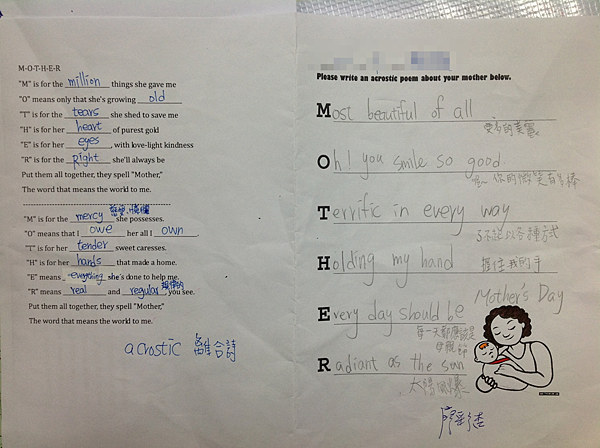 M-O-T-H-E-R
"M" is for the million things she gave me
"O" means only that she's growing old
"T" is for the tears she shed to save me
"H" is for her heart of purest gold
"E" is for her eyes, with love-light kindness
"R" is for her right she'll always be
Put them all together, they spell "Mother,"
The word that means the world to me.
"M" is for the mercy she possesses.
"O" means that I owe her all I own.
"T" is for her tender sweet caresses.
"H" is for her hands that made a home.
"E" means everything she's done to help me.
"R" means real and regular, you see.
Put them all together, they spell "Mother,"
The word that means the world to me.
acrostic 離合詩
Please write an acrostic poem about your mother below.
Most beautiful of all.
更多的美麗
Oh! you smile so good
你的微笑有多棒
Terrific in every way
了不起以各種方式
Holding my hand
握住我的手
Every day should be Mother's Day
每一天都應該是
母親節
Radiant as the sun
太陽